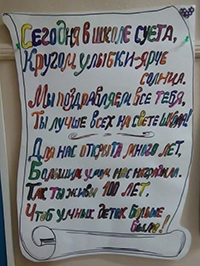 Сегодня в школе суета,
Кругом улыбки-ярче
солнца.
Мы поздравляем все тебя,
Ты лучше всех на свете школа!
Для нас открыта много лет,
Большим умом нас наградила.
Так ты живи 100 лет,
Чтоб умных деток больше
было!